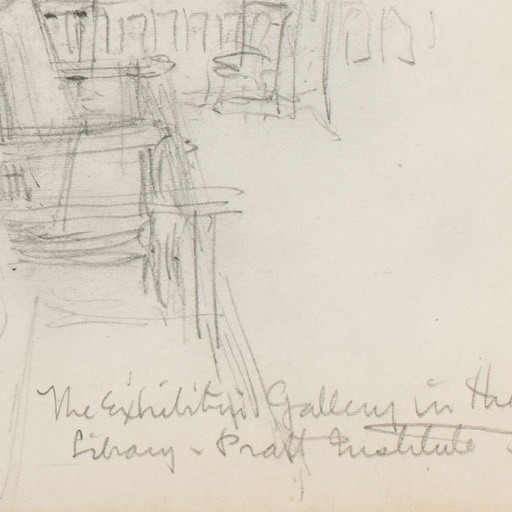 The Exhibition Gallery in the
Library - Pratt Institute